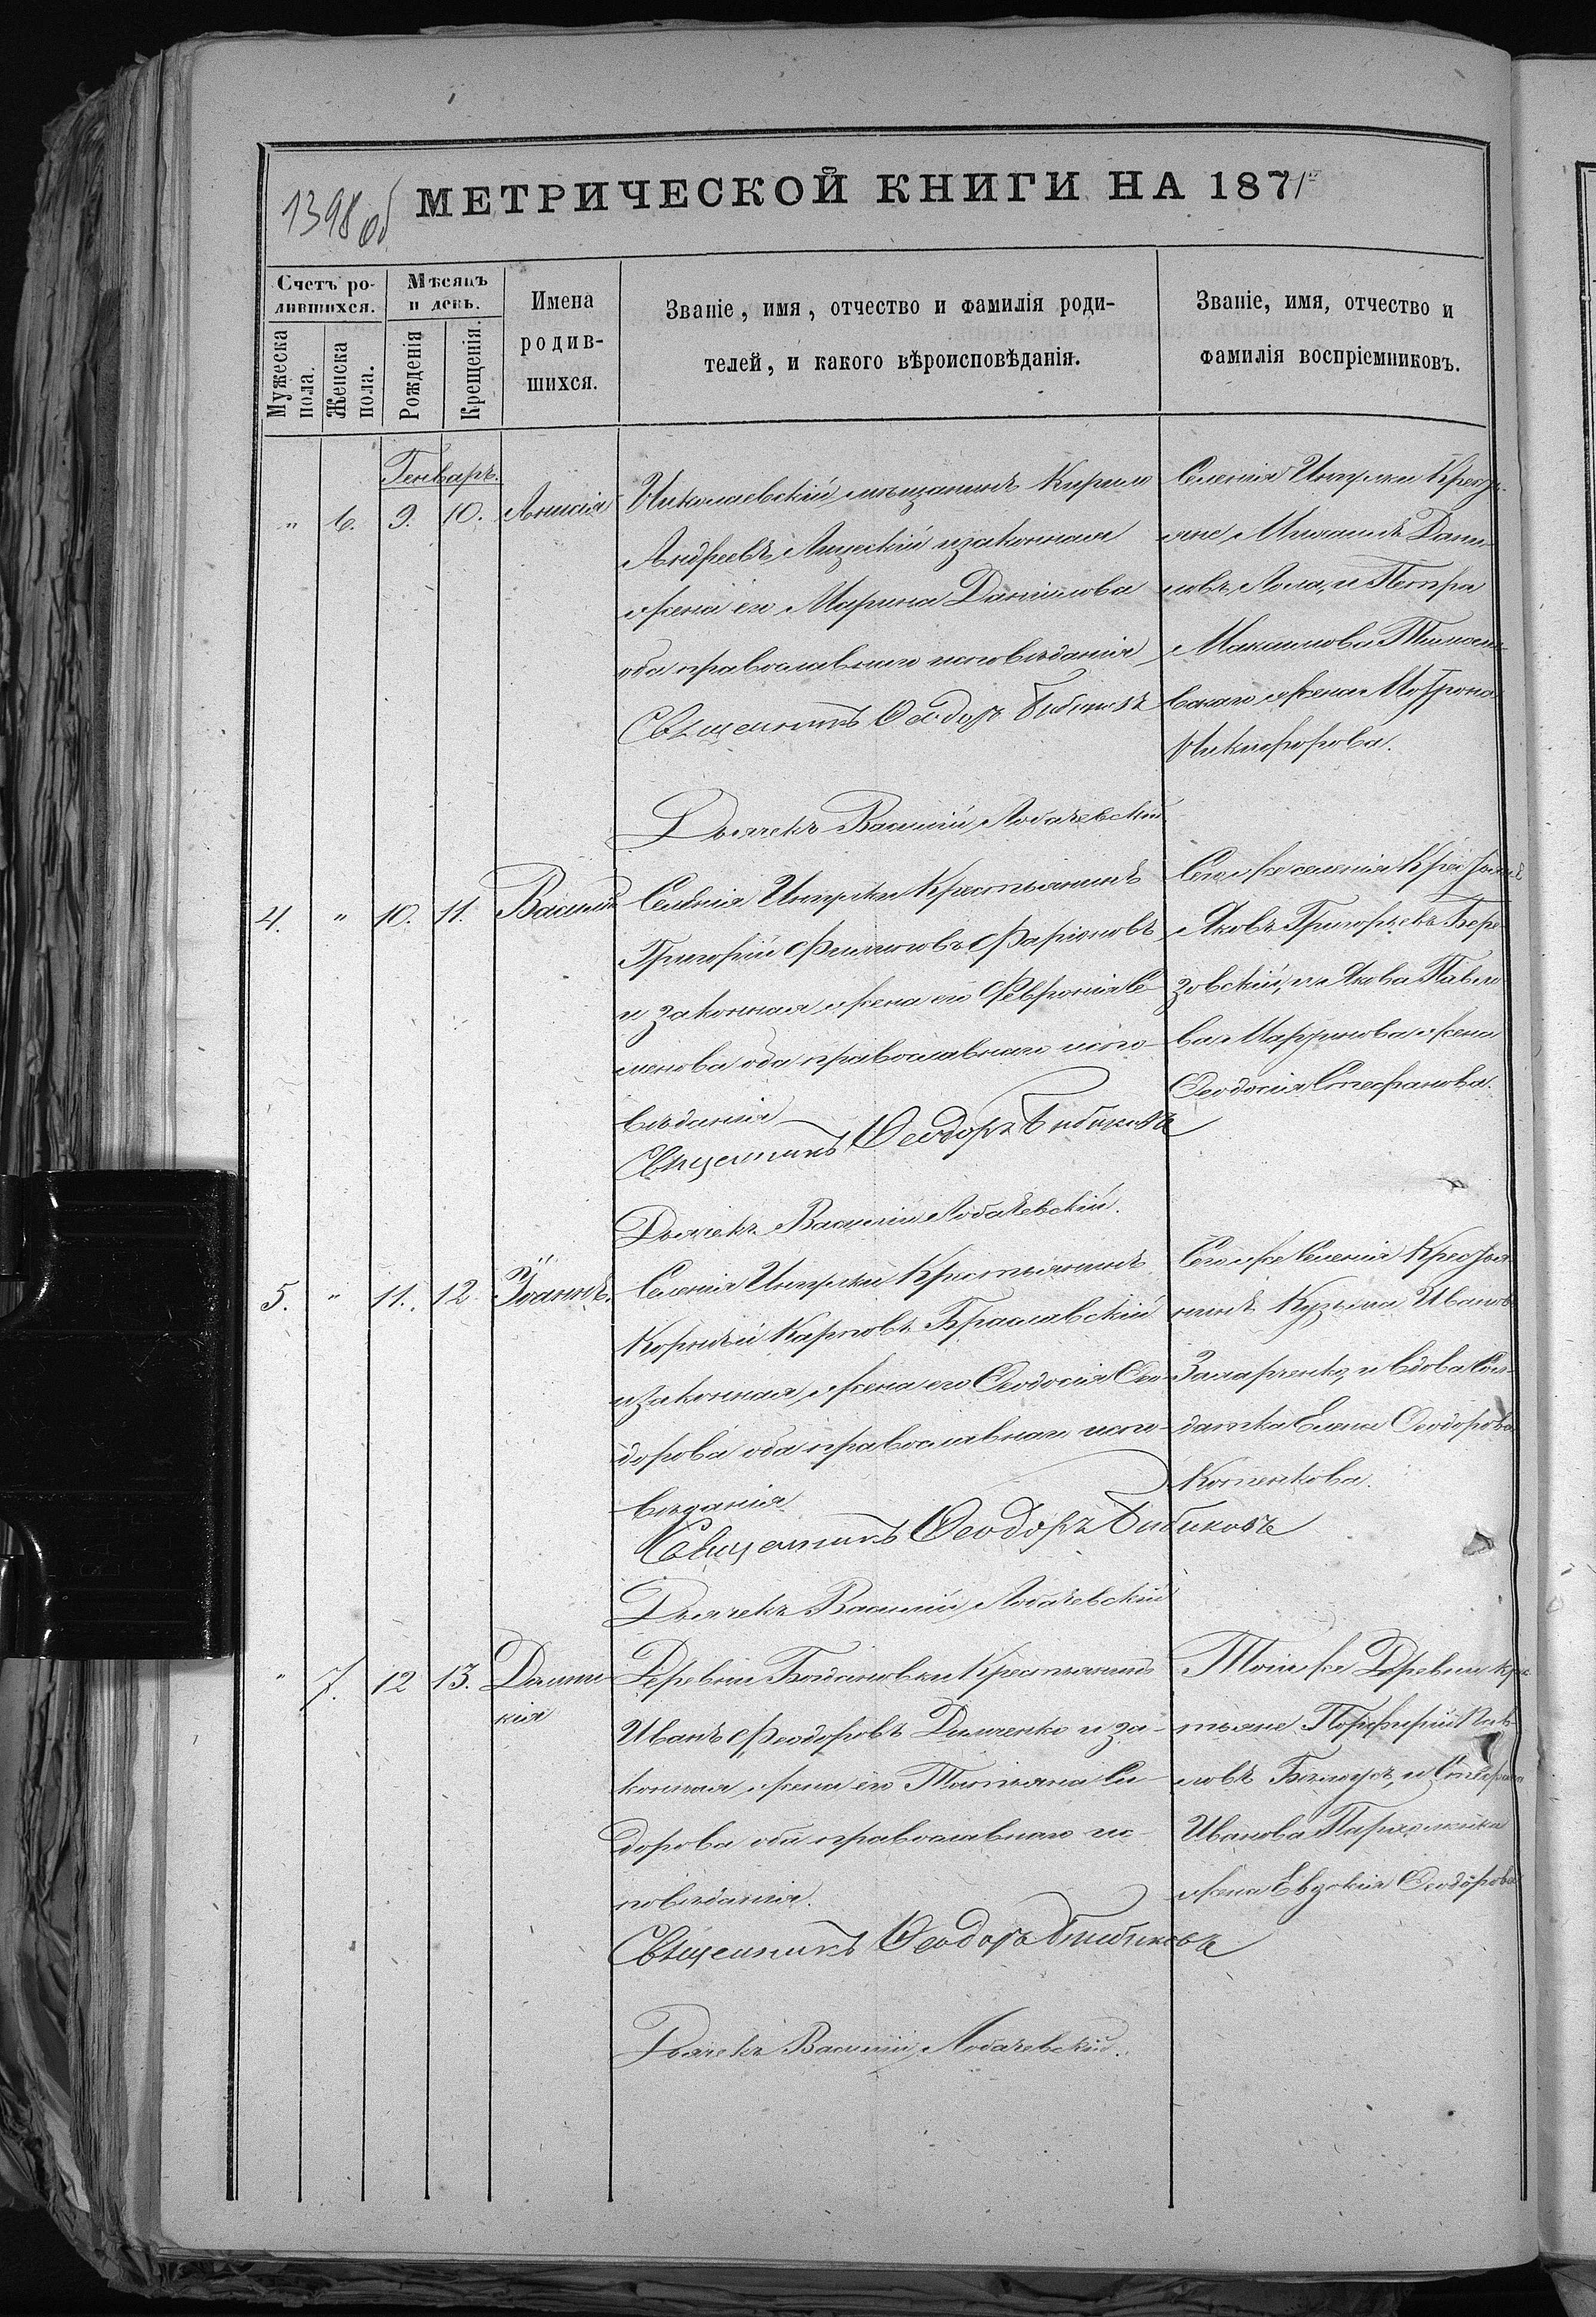 1398 об
МЕТРИЧЕСКОЙ КНИГИ НА 1871
Счетъ ро-
дившихся.
Мѣсяцъ
и день.
Мужеска
пола.
Женска
пола.
Рожденія
Крещенія.
Имена
родив-
шихся.
Званіе, имя, отчество и фамилія роди-
телей, и какого вѣроисповѣданія.
Званіе, имя, отчество и
фамилія воспріемниковъ.
Генварь.
" 6. 9. 10. Анисія
Николаевскій мѣщанинъ Кирилъ
Андреевъ и законная
жена его Марина Даніилова
оба православнаго исповѣданія
Священникъ Ѳеодоръ Бибиковъ
Дьячекъ Василій Лобачевскій
Селенія Ингулки
Дани-
ловъ и Петра
Максимова
жена
Никифорова.
4. " 10. 11. Василій
Селенія Ингулки Крестьянинъ
Григорій Филиповъ
и законная жена его Февронія Се-
менова оба православнаго испо-
вѣданія
Священникъ Ѳеодоръ Бибиковъ
Дьячекъ Василій Лобачевскій.
Того же селенія
Яковъ Григорьевъ Бере-
зовскій, и Якова Павло-
ва жена
Ѳеодосія Стефанова.
5. " 11. 12. Іоаннъ.
Селенія Ингулки Крестьянинъ
Корнѣй Карповъ Браславскій
и законная жена его Ѳеодосія Ѳео-
дорова оба православнаго испо-
вѣданія
Священникъ Ѳеодоръ Бибиковъ
Дьячекъ Василій Лобачевскій
Того же Селенія Крестья-
нинъ Кузьма Ивановъ
и вдова Сол-
датка Елена Ѳеодорова
Котенкова.
" 7. 12 13. Домни-
кія
Деревни Богдановки Крестьянинъ
Иванъ Ѳеодоровъ и за-
конная жена его Татьяна Си-
дорова оба православнаго ис-
повѣданія.
Священникъ Ѳеодоръ Бибиковъ
Дьячекъ Василій Лобачевскій.
Той же Деревни кре-
стьяне Порфирій Пав-
ловъ и Стефана
Иванова
жена Евдокія Ѳеодорова